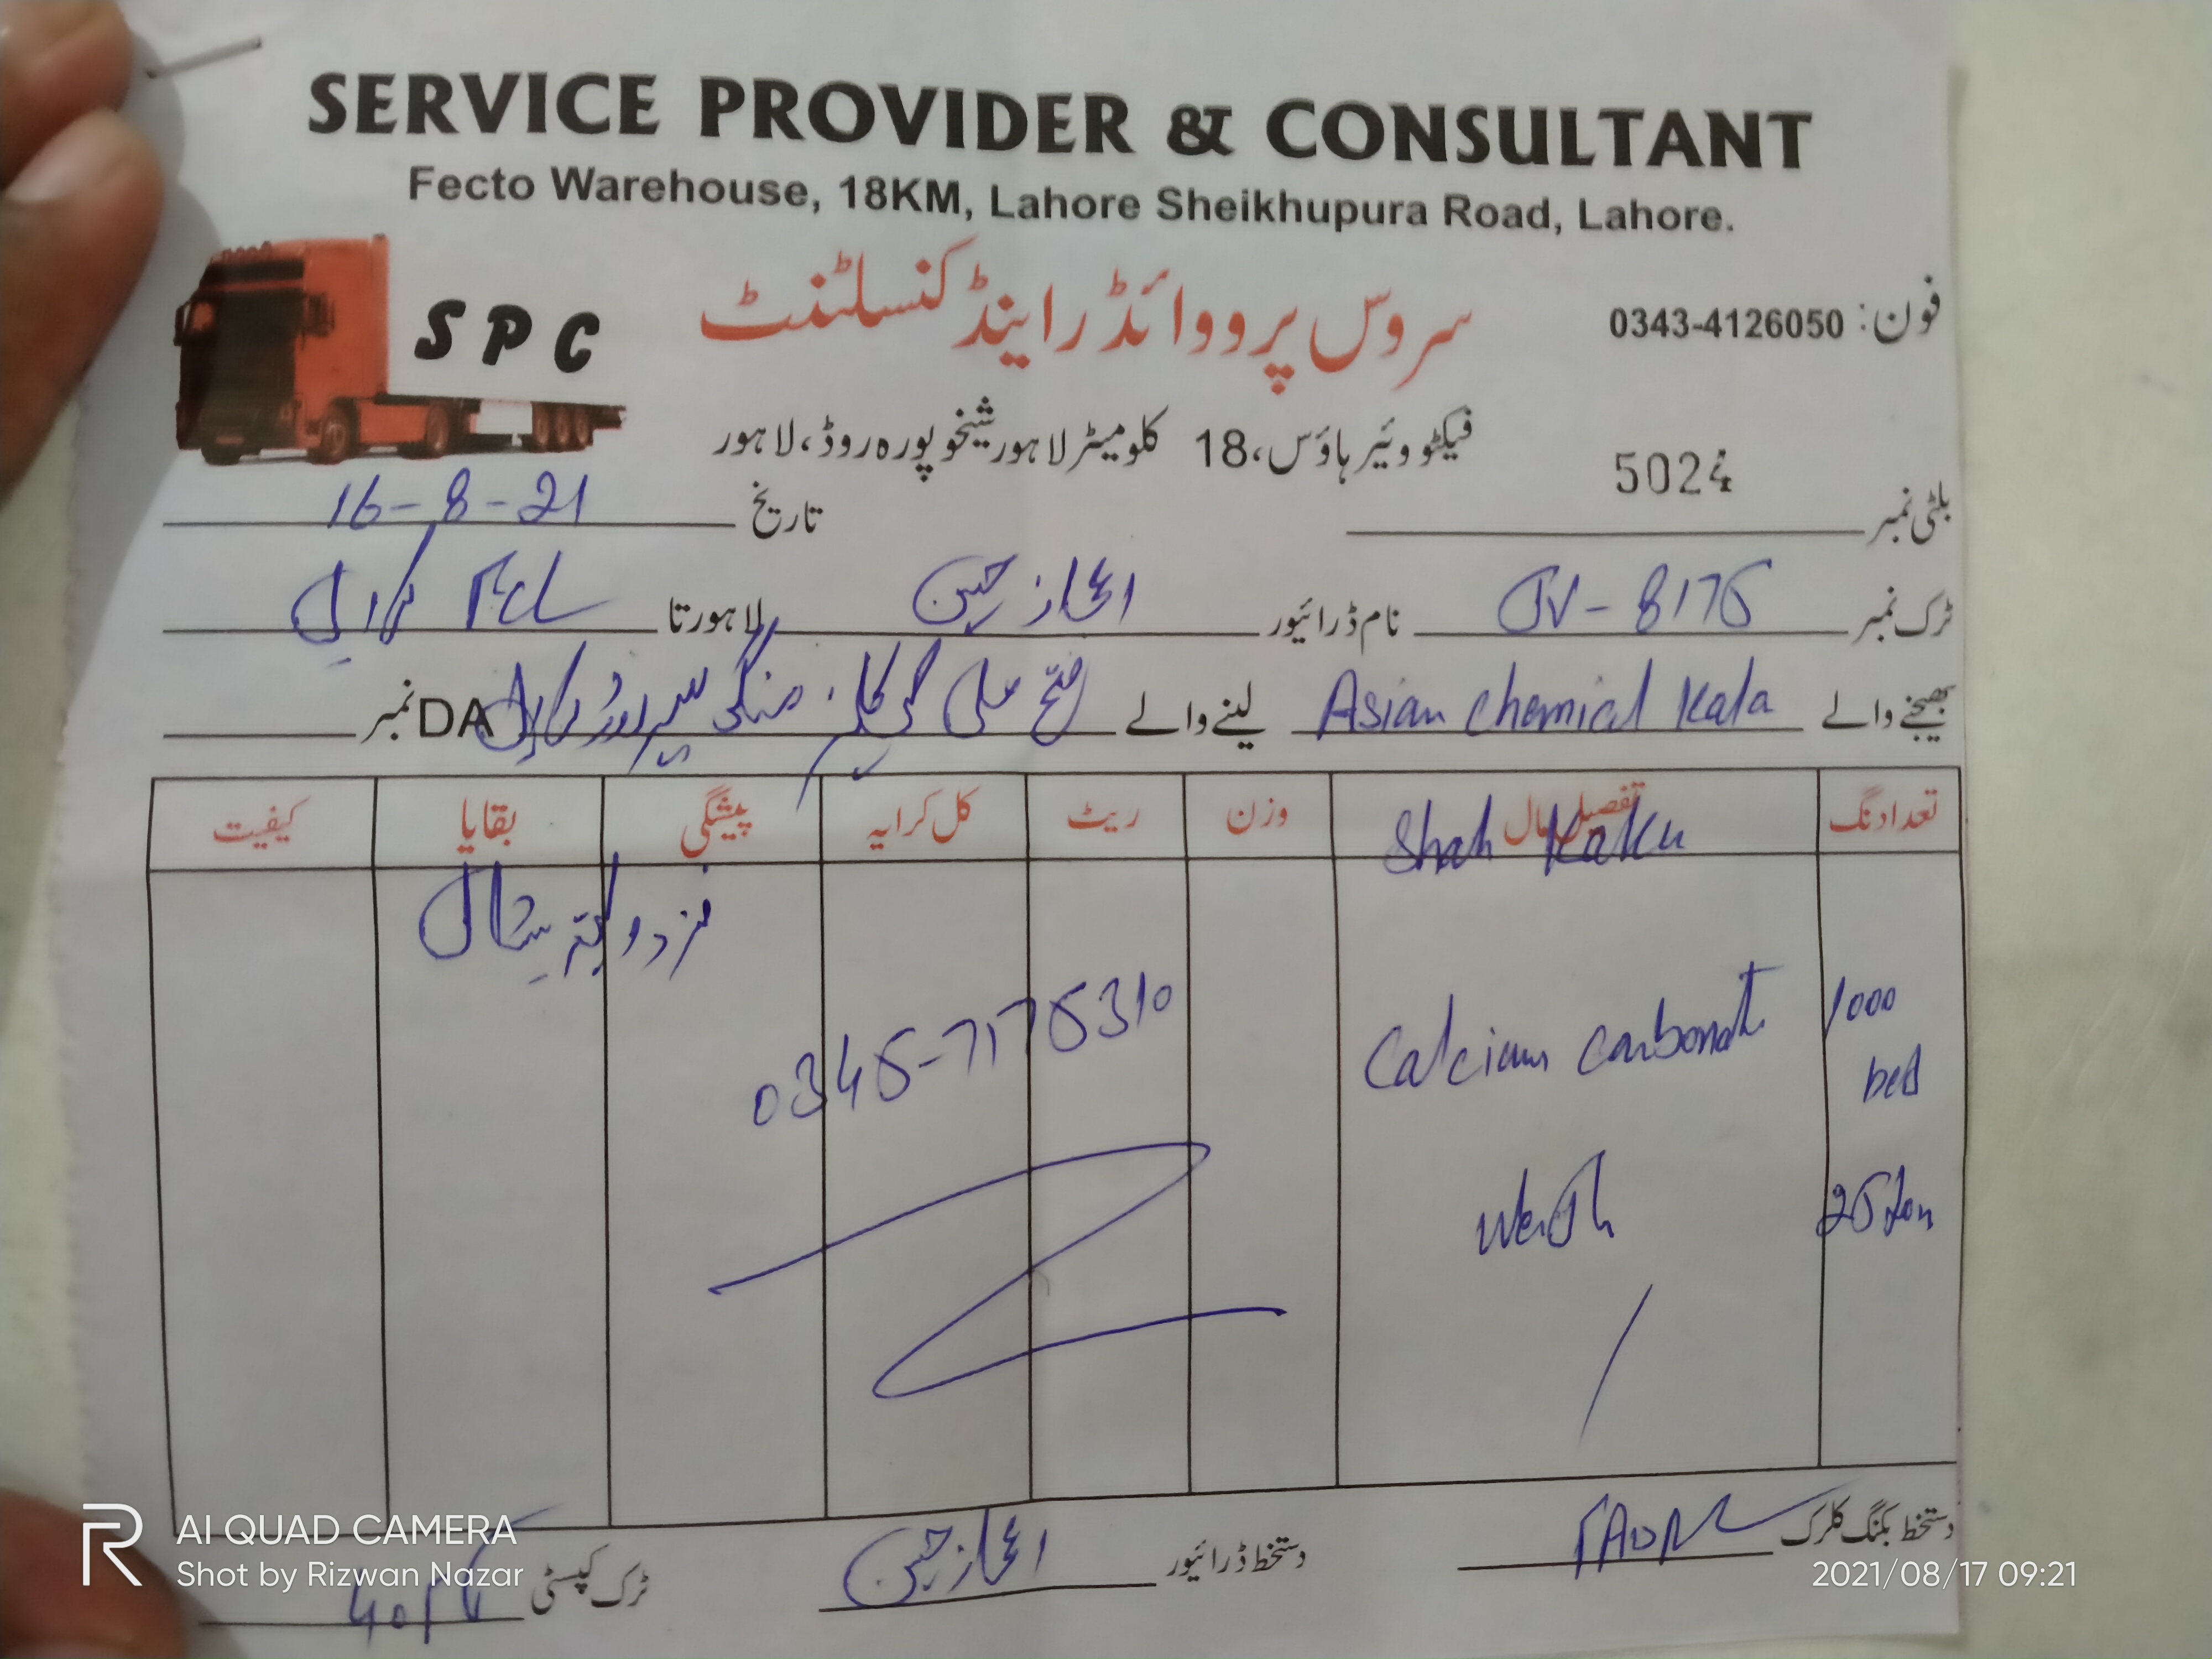 SERVICE PROVIDER & CONSULTANT
Fecto Warehouse, 18KM, Lahore Sheikhupura Road, Lahore.
SPC
سروس پرووائڈر اینڈ کنسلٹنٹ
فون: 0343-4126050
فیکٹو ویئر ہاؤس، 18 کلومیٹر لاہور شیخوپورہ روڈ، لاہور
بلٹی نمبر 5024
تاریخ 16-8-21
ٹرک نمبر 8175
نام ڈرائیور اعجاز حسین
لاہور تا FCL
بھیجنے والے Asian Chemical Kala
لینے والے فتح
DA نمبر
تعداد نگ تفصیل مال وزن ریٹ کل کرایہ پیشگی بقایا کیفیت
Shah Kaku
نزد
Calcium carbonat 1000
0345-7175310
25 Ton
دستخط بکنگ کلرک
دستخط ڈرائیور اعجاز حسین
ٹرک کپسٹی
AI QUAD CAMERA
Shot by Rizwan Nazar
2021/08/17 09:21